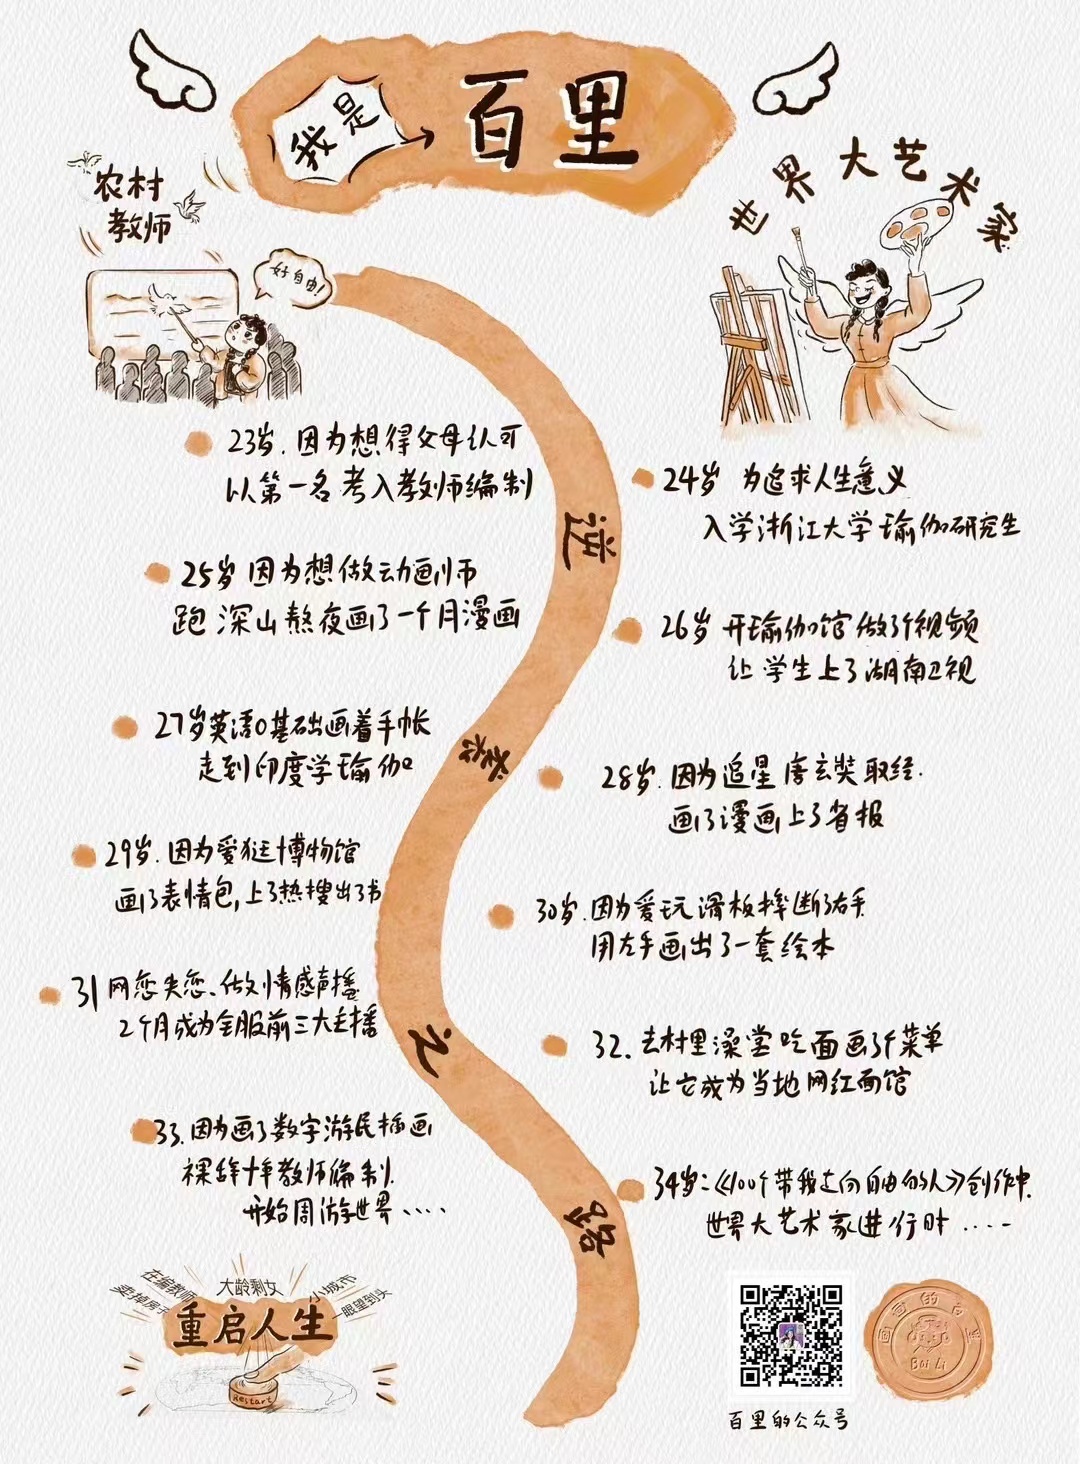 我是
百里
农村
教师
好自由!
世界大艺术家
23岁.因为想得父母认可
以第一名考入教师编制
24岁 为追求人生意义
入学浙江大学瑜伽研究生
25岁 因为想做动画师
跑深山熬夜画了一个月漫画
26岁 开瑜伽馆做了个视频
让学生上了湖南卫视
27岁英语0基础画着手帐
走到印度学瑜伽
28岁.因为追星唐玄奘取经.
画了漫画上了省报
29岁.因为爱逛博物馆
画了表情包,上了热搜出了书
30岁.因为爱玩滑板摔断了右手
用左手画出了一套绘本
31网恋失恋、做情感声播
2个月成为全服前三大主播
32.去村里澡堂吃面画了个菜单
让它成为当地网红面馆
33.因为画了数字游民插画
裸辞十年教师编制.
开始周游世界....
34岁:《100个带我走向自由的人》创作中.
世界大艺术家进行时....
逆袭之路
在编教师
大龄剩女
小城市
卖掉房子
眼望到头
重启人生
Restart
百里的公众号
Bai Li